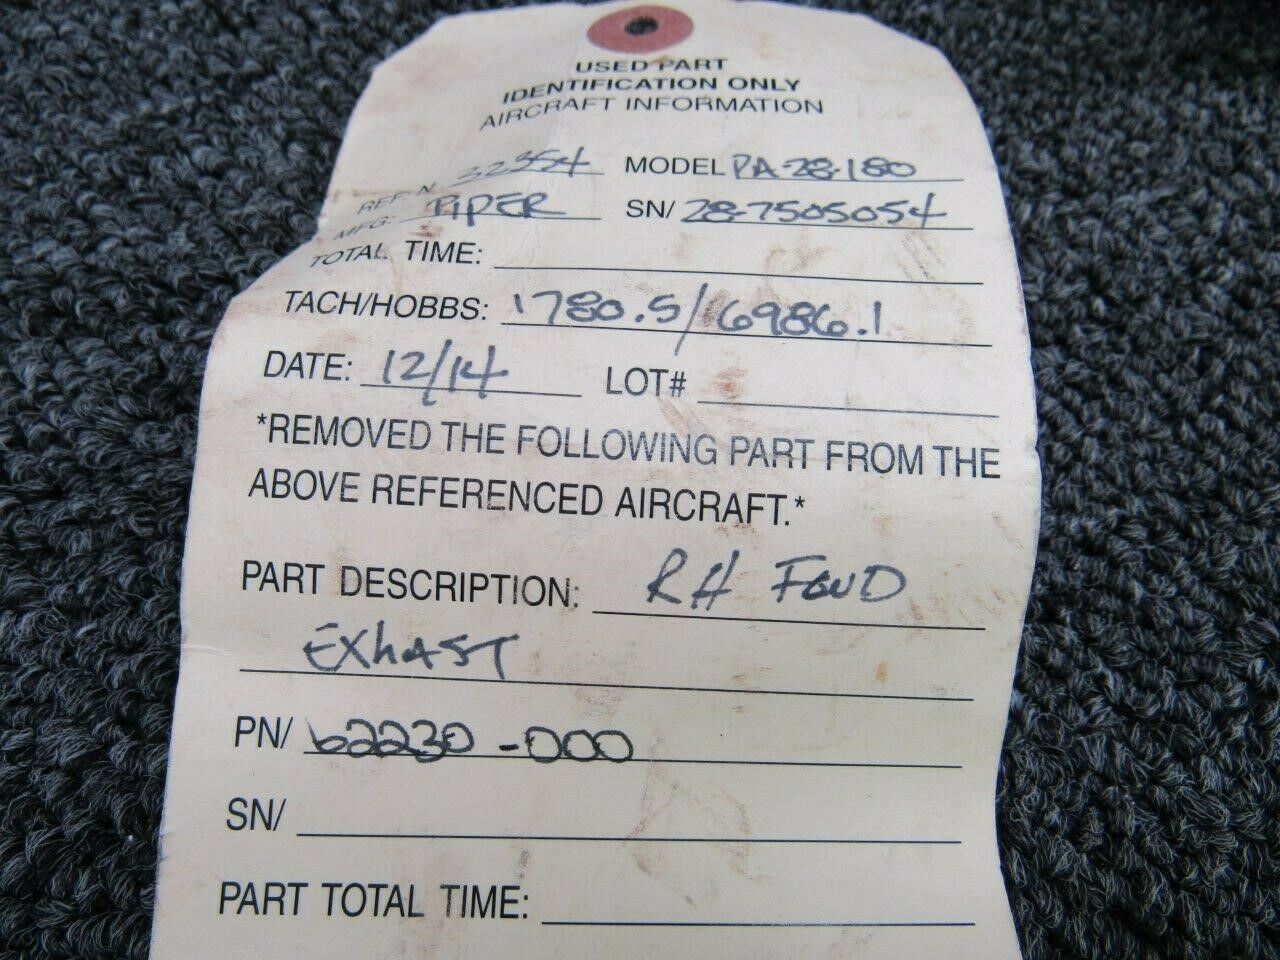 USED PART
IDENTIFICATION ONLY
AIRCRAFT INFORMATION
REF N 32354 MODEL PA-28-180
MFG: PIPER SN/ 28-7505054
TOTAL TIME:
TACH/HOBBS: 1780.5/6986.1
DATE: 12/14 LOT#
*REMOVED THE FOLLOWING PART FROM THE
ABOVE REFERENCED AIRCRAFT.*
PART DESCRIPTION: RH FWD
EXHAST
PN/ 62230-000
SN/
PART TOTAL TIME: